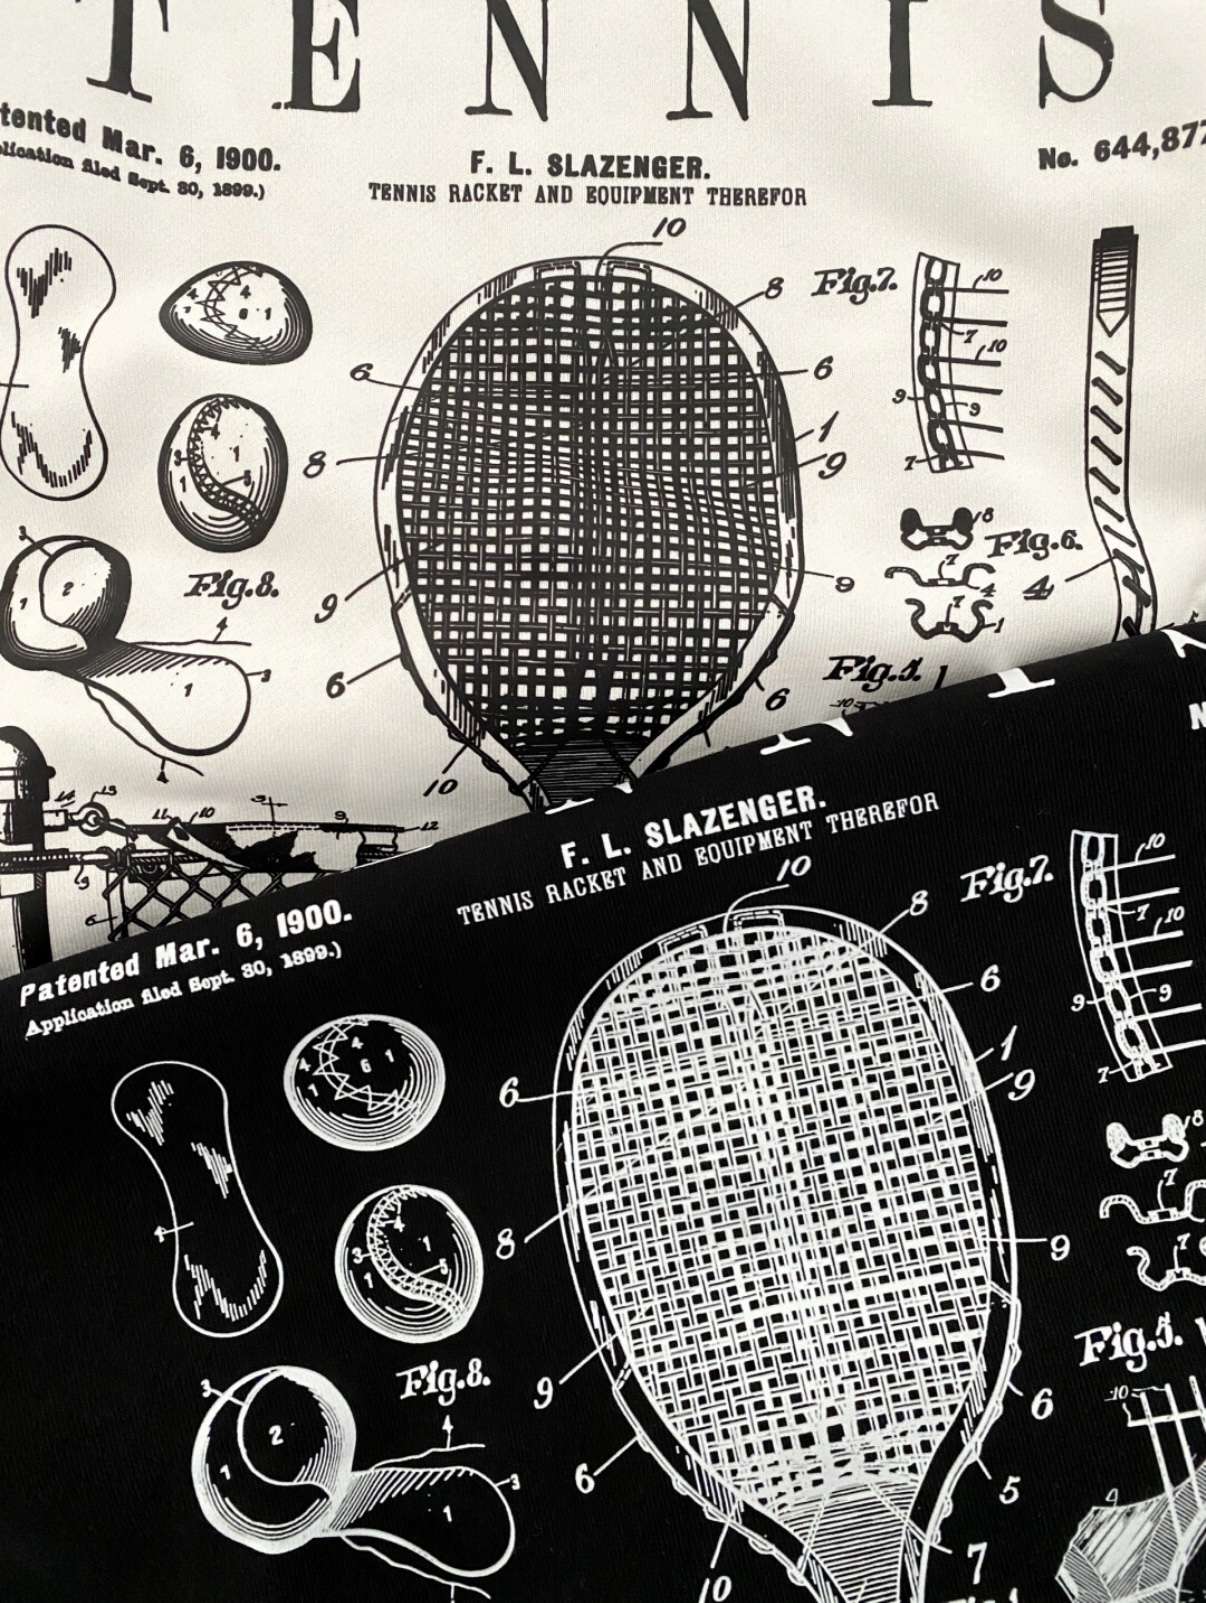 TENNIS
tented Mar. 6, 1900.
plication filed Sept. 30, 1899.)
F. L. SLAZENGER.
TENNIS RACKET AND EQUIPMENT THEREFOR
No. 644,877
10
8
Fig.7.
10
7
10
4
4
6
1
6
6
9
9
1
9
8
7
4
3
1
1
5
3
1
2
Fig.8.
4
3
1
9
6
9
6
10
8
Fig.6.
7
4
4
7
1
Fig.5.
10
14
13
11
10
3
9
12
9
6
F. L. SLAZENGER.
TENNIS RACKET AND EQUIPMENT THEREFOR
Patented Mar. 6, 1900.
Application filed Sept. 30, 1899.)
N
10
8
Fig.7.
10
7
10
9
9
7
6
1
9
6
4
4
6
1
1
8
4
3
1
1
5
9
8
7
7
Fig.5.
10
3
2
1
Fig.8.
4
3
1
9
6
6
5
7
10
4